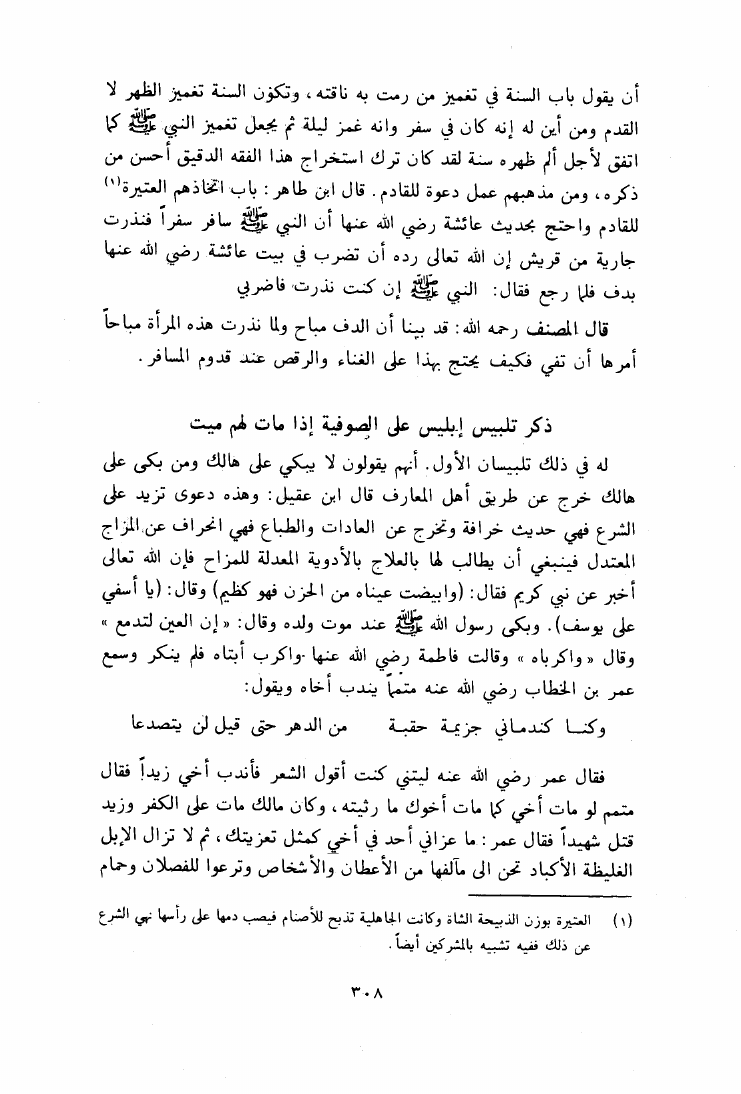 أن يقول باب السنة في تغميز من رمت به ناقته، وتكون السنة تغميز الظهر لا
القدم ومن أين له إنه كان في سفر وانه غمز ليلة ثم يجعل تغميز النبي ﷺ كما
اتفق لأجل ألم ظهره سنة لقد كان ترك استخراج هذا الفقه الدقيق أحسن من
ذكره، ومن مذهبهم عمل دعوة للقادم. قال ابن طاهر: باب اتخاذهم العتيرة(١)
للقادم واحتج بحديث عائشة رضي الله عنها أن النبي ﷺ سافر سفراً فنذرت
جارية من قريش إن الله تعالى رده أن تضرب في بيت عائشة رضي الله عنها
بدف فلما رجع فقال: النبي ﷺ إن كنت نذرت فاضربي
قال المصنف رحمه الله: قد بينا أن الدف مباح ولما نذرت هذه المرأة مباحاً
أمرها أن تفي فكيف يحتج بهذا على الغناء والرقص عند قدوم المسافر.
ذكر تلبيس إبليس على الصوفية إذا مات لهم ميت
له في ذلك تلبيسان الأول. أنهم يقولون لا يبكي على هالك ومن بكى على
هالك خرج عن طريق أهل المعارف قال ابن عقيل: وهذه دعوى تزيد على
الشرع فهي حديث خرافة وتخرج عن العادات والطباع فهي انحراف عن المزاج
المعتدل فينبغي أن يطالب لها بالعلاج بالأدوية المعدلة للمزاح فإن الله تعالى
أخبر عن نبي كريم فقال: (وابيضت عيناه من الحزن فهو كظيم) وقال: (يا أسفي
على يوسف). وبكى رسول الله ﷺ عند موت ولده وقال: « إن العين لتدمع »
وقال « واكرباه » وقالت فاطمة رضي الله عنها واكرب أبتاه فلم ينكر وسمع
عمر بن الخطاب رضي الله عنه متمماً يندب أخاه ويقول:
وكنا كندماني جزيمة حقبة من الدهر حتى قيل لن يتصدعا
فقال عمر رضي الله عنه ليتني كنت أقول الشعر فأندب أخي زيداً فقال
متمم لو مات أخي كما مات أخوك ما رثيته، وكان مالك مات على الكفر وزيد
قتل شهيداً فقال عمر: ما عزاني أحد في أخي كمثل تعزيتك، ثم لا تزال الإبل
الغليظة الأكباد تحن الى مآلفها من الأعطان والأشخاص وترعوا للفصلان وحمام
(١) العتيرة بوزن الذبيحة الشاة وكانت الجاهلية تذبح للأصنام فيصب دمها على رأسها نهي الشرع
عن ذلك ففيه تشبيه بالمشركين أيضاً.
٣٠٨